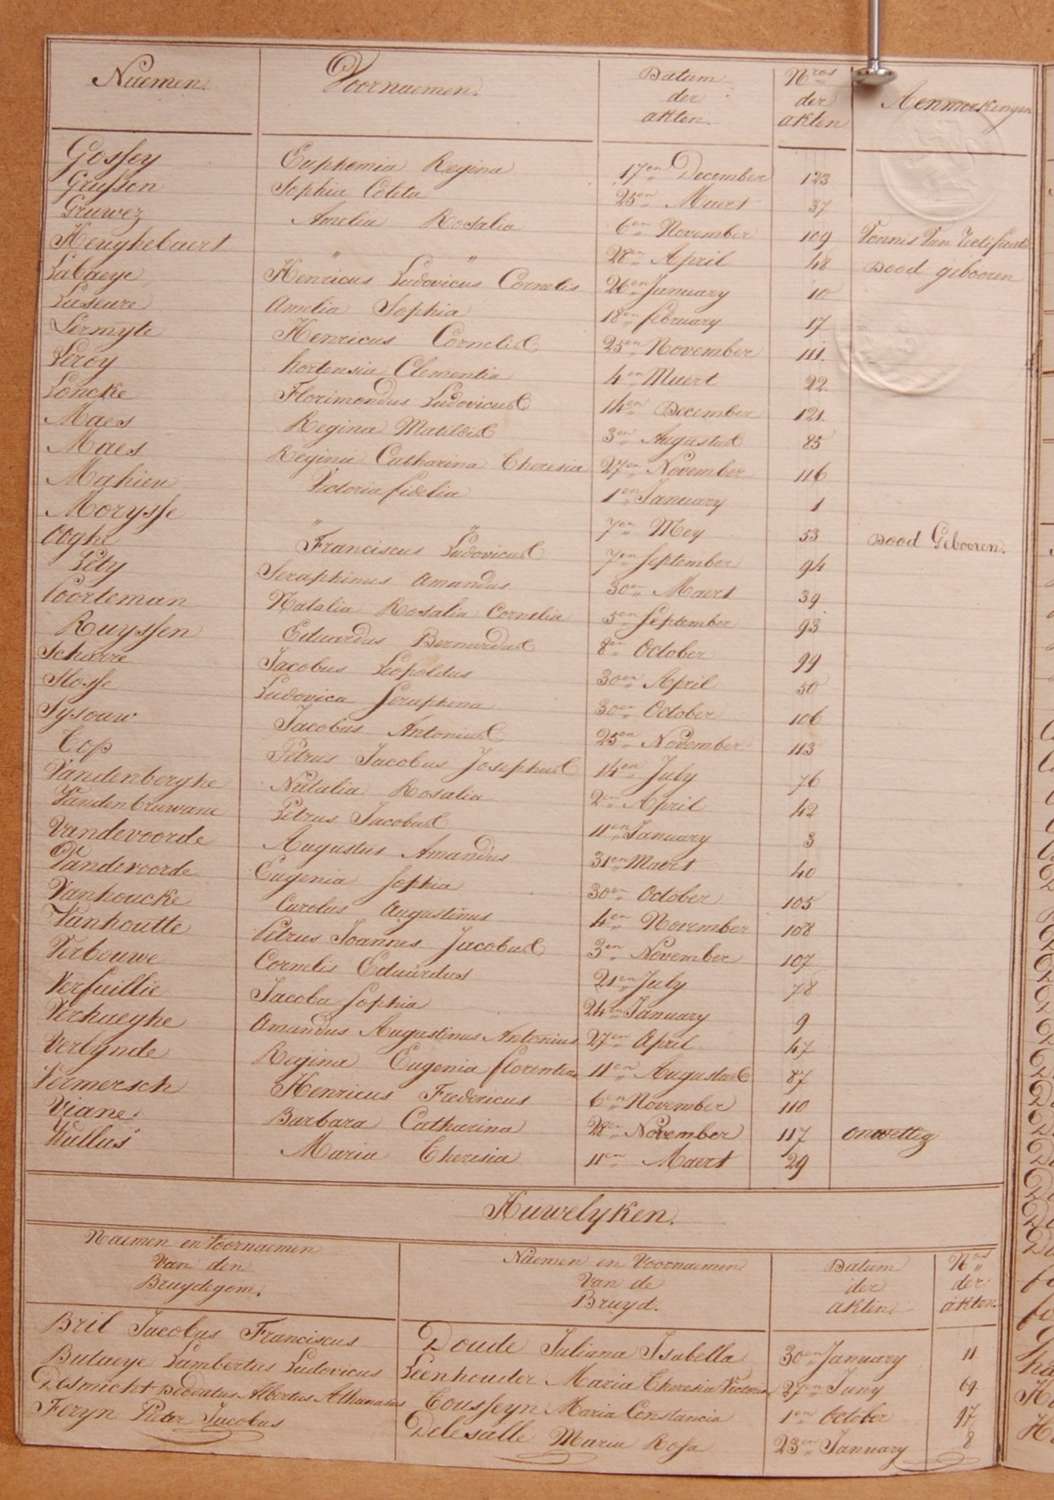 Naemen. Voornaemen. Datum der akten. Nros der akten Aenmerkingen
Gossey Euphemia Regina 17en December 123
Gryson Sophia Coleta 25en Maert 37
Gruwez Amelia Rosalia 6en November 109 Vonnis Van
Heughebaert " " 28en April 48 Dood gebooren
Labaeye Henricus Ludovicus Cornelis 26en January 10
Laseure Amelia Sophia 18en february 17
Lermyte Henricus Cornelis 25en November 111
Leroy hortensia Clementia 4en Maert 22
Loncke Florimondus Ludovicus 14en December 121
Maes Regina Matilde 3en Augusta 85
Maes Regina Catharina Theresia 27en November 116
Mahieu Victoria fidelia 1en January 1
Morysse " 7en Mey 53 Dood Gebooren.
Ooghe Franciscus Ludovicus 7en September 94
Pety Seraphinus Amandus 30en Maert 39
Poorteman Natalia Rosalia Cornelia 5en September 93
Ruyssen Eduardus Bernardus 8en October 99
Scherre Jacobus Leopoldus 30en April 50
Slosse Ludovica Seraphena 30en October 106
Sysouw Jacobus Antonius 25en November 113
Top Petrus Jacobus Josephus 14en July 76
Vandenberghe Natalia Rosalia 2en April 42
Vandenbruwane Petrus Jacobus 11en January 3
Vandevoorde Augustus Amandus 31en Maert 40
Vandevoorde Eugenia Sophia 30en October 105
Vanhoucke Carolus Augustinus 4en November 108
Vanhoutte Petrus Joannes Jacobus 3en November 107
Verbouwe Cornelis Eduardus 21en July 78
Verfaillie Jacoba Sophia 24en January 9
Verhaeghe Amandus Augustinus Antonius 27en April 47
Verlynde Regina Eugenia florentia 11en Augusta 87
Vermersch Henricus Fredericus 6en November 110
Viane Barbara Catharina 28en November 117 onwettig
Wullus Maria Theresia 11en Maert 29
Huwelyken.
Naemen en Voornaemen Van den Bruydegom. Naemen en Voornaemen Van de Bruyd. Datum der akten Nros der akten.
Bril Jacobus Franciscus Doude Juliana Isabella 30en January 11
Butaeye Lambertus Ludovicus Leenhouder Maria Theresia Victoria 27en Juny 69
Desmicht Deodatus Albertus Athanasius Cousseyn Maria Constancia 1en October 97
Feryn Pieter Jacobus Delesalle Maria Rosa 23en January 8